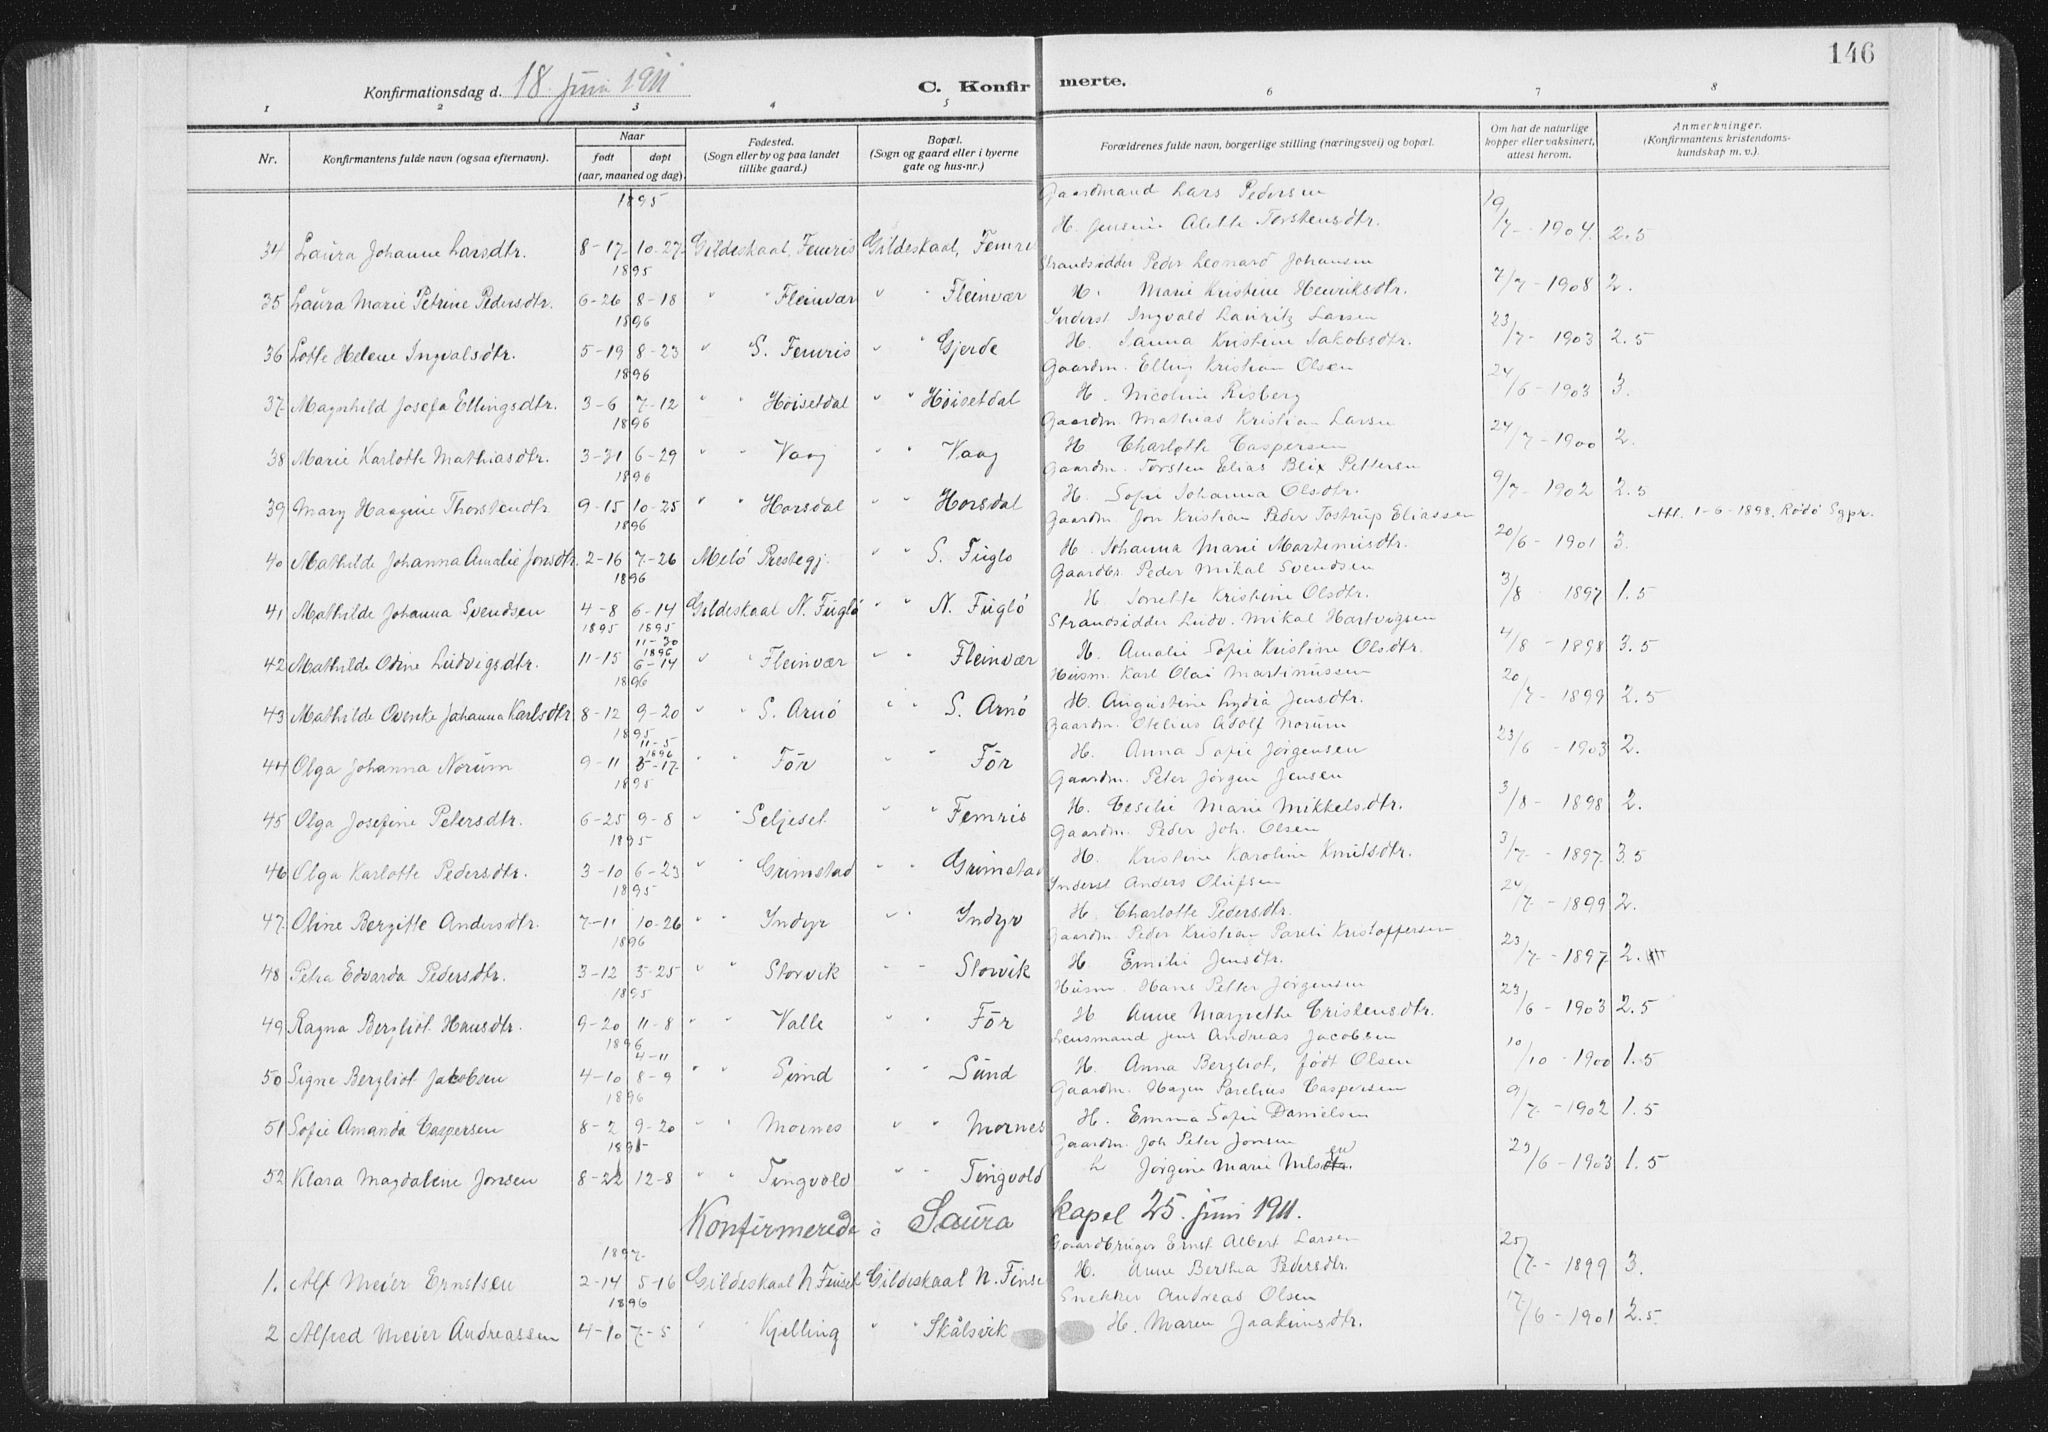 146
Konfirmationsdag d. 18 juni 1911 C. Konfirmerte.
1 2 3 4 5 6 7 8
Nr. Konfirmantens fulde navn (ogsaa efternavn). Naar født døpt (aar, maaned og dag). Fødested. (Sogn eller by og paa landet tillike gaard.) Bopæl. (Sogn og gaard eller i byerne gate og hus-nr.) Forældrenes fulde navn, borgerlige stilling (næringsvei) og bopæl. Om hat de naturlige kopper eller vaksinert, attest herom. Anmerkninger. (Konfirmantens kristendoms-kundskap m. v.)
1895 Gaardmand Lars Pedersen
34 Laura Johanne Larsdtr. 8-17 10-27 Gildeskaal, Femris Gildeskaal, Femris H. Jensine Alette Torstensdtr. 19/7-1904. 2.5
1895 Strandsidder Peder Leonard Johansen
35 Laura Marie Petrine Pedersdtr. 6-26 8-18 " " Fleinvær " " Fleinvær H. Marie Kristine Henriksdtr. 7/7-1908 2.
1896 Inderst Ingvald Lauritz Larsen
36 Lotte Helene Ingvalsdtr. 5-19 8-23 " " S. Femris " " Gjerde H. Sanna Kristine Jakobsdtr. 23/7-1903 2.5
1896 Gaardm. Elling Kristian Olsen
37 Magnhild Josefa Ellingsdtr. 3-6 7-12 " " Höisetdal " " Höisetdal H. Nicoline Risberg 24/6-1903 3.
1896 Gaardm. Mathias Kristian Larsen
38 Marie Karlotte Mathiasdtr. 3-31 6-29 " " Vaag " " Vaag H Charlotte Caspersen 24/7-1900 2.
1896 Gaardm. Torsten Elias Blix Pettersen
39 Mary Haagine Thorstendtr 9-15 10-25 " " Horsdal " " Horsdal H. Sofie Johanna Olsdtr. 9/7-1902 2.5
1896 Gaardm. Jon Kristian Peder Tostrup Eliassen Att. 1-6-1898, Rödö Sgpr.
40 Mathilde Johanna Amalie Jonsdtr. 2-16 7-26 Melö Prestegj. " " S. Fuglö H. Johanna Marie Martinusdtr. 20/6-1901 3.
1896 Gaardbr. Peder Mikal Svendsen
41 Mathilde Johanna Svendsen 4-8 6-14 Gildeskaal N. Fuglö " " N. Fuglö H Sorette Kristine Olsdtr. 3/8 1897 1.5
1895 1895 Strandsidder Ludv. Mikal Hartvigsen
11-30 1896
42 Mathilde Odine Ludvigsdtr. 11-15 6-14 " " Fleinvær " " Fleinvær H. Amalie Sofie Kristine Olsdtr. 4/8-1898 3.5
1896 Husm. Karl Olai Martinussen
43 Mathilde Ovenke Johanna Karlsdtr. 8-12 9-20 " " S. Arnö " " S. Arnö H. Augustine Lydia Jensdtr. 20/7-1899 2.5
1895 Gaardm. Otelius Adolf Norum
11-5 1896
44 Olga Johanna Norum 9-11 5-17 " " För " För H. Anna Sofie Jørgensen 23/6-1903 2.
1895 Gaardm. Peter Jørgen Jensen
45 Olga Josefine Petersdtr. 6-25 9-8 " " Seljeset " Femris H. Cesilie Marie Mikkelsdtr. 3/8-1898 2.
1895 Gaardm. Peder Joh. Olsen
46 Olga Karlotte Pedersdtr. 3-10 6-23 " " Grimstad " " Grimstad H. Kristine Karoline Knutsdtr. 3/7-1897 3.5
1895 Inderst Anders Olufsen
47 Oline Bergitte Andersdtr. 7-11 10-26 " " Indyr " " Indyr H. Charlotte Pedersdtr. 24/7-1899 2.
1896 Gaardm. Peder Kristian Pareli Kristoffersen
48 Petra Edvarda Pedersdtr. 3-12 5-25 " " Storvik " " Storvik H. Emilie Jensdtr. 23/7-1897 2.
1895 Husm. Hans Petter Jørgensen
49 Ragna Bergliot Hansdtr. 9-20 11-8 " " Valle " " För H Anne Margrethe Cristensdtr. 23/6-1903 2.5
1896 Lensmand Jens Andreas Jacobsen
4-11
50 Signe Bergliot Jakobsen 4-10 8-9 " " Sund " " Sund H. Anna Bergliot, født Olsen 10/10-1900 1.5
1896 Gaardm. Hagen Parelius Caspersen
51 Sofie Amanda Caspersen 8-2 9-20 " " Mornes " " Mornes H. Emma Sofie Danielsen 9/7-1902 1.5
1895 Gaardm. Joh Peter Jonsen
52 Klara Magdalene Jonsen 8-22 12-8 " " Tingvold " " Tingvold H Jørgine Marie Nilsen 23/6-1903 1.5
Konfirmerede i Saura kapel 25. juni 1911.
1897 Gaardbruger Ernst Albert Larsen
1. Alf Meier Ernstsen 2-14 5-16 Gildeskaal N. Finset Gildeskaal N. Finse H. Anne Berthea Pedersdtr. 25/7-1899 3.
1896 Snekker Andreas Olsen
2 Alfred Meier Andreassen 4-10 7-5 " " Kjelling " " Skålsvik H. Maren Joakimsdtr. 17/6-1901 2.5.